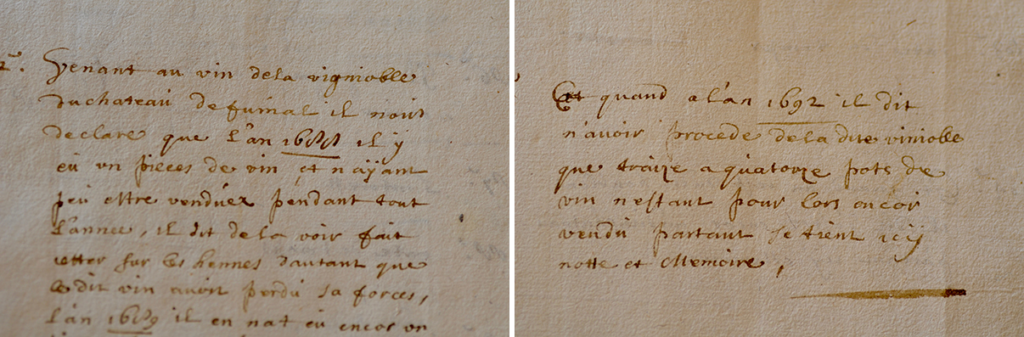 2º. Venant au vin dela vignioble
du chateau de fumal il nous
declare que L'an 1688 il y
eu un pieces de vin et n'aÿant
peu estre venduez pendant tout
L'annee, il dit de la voir fait
ietter sur les hennes d'autant que
le dit vin avoit perdu sa forces,
l'an 1689 il en nat eu encor un
Et quand a l'an 1692 il dit
n'avoir procede de la dite viniolle
que traize a quatorze pots de
vin n'estant pour lors encor
vendu partant se tient icÿ
notte et Memoire,